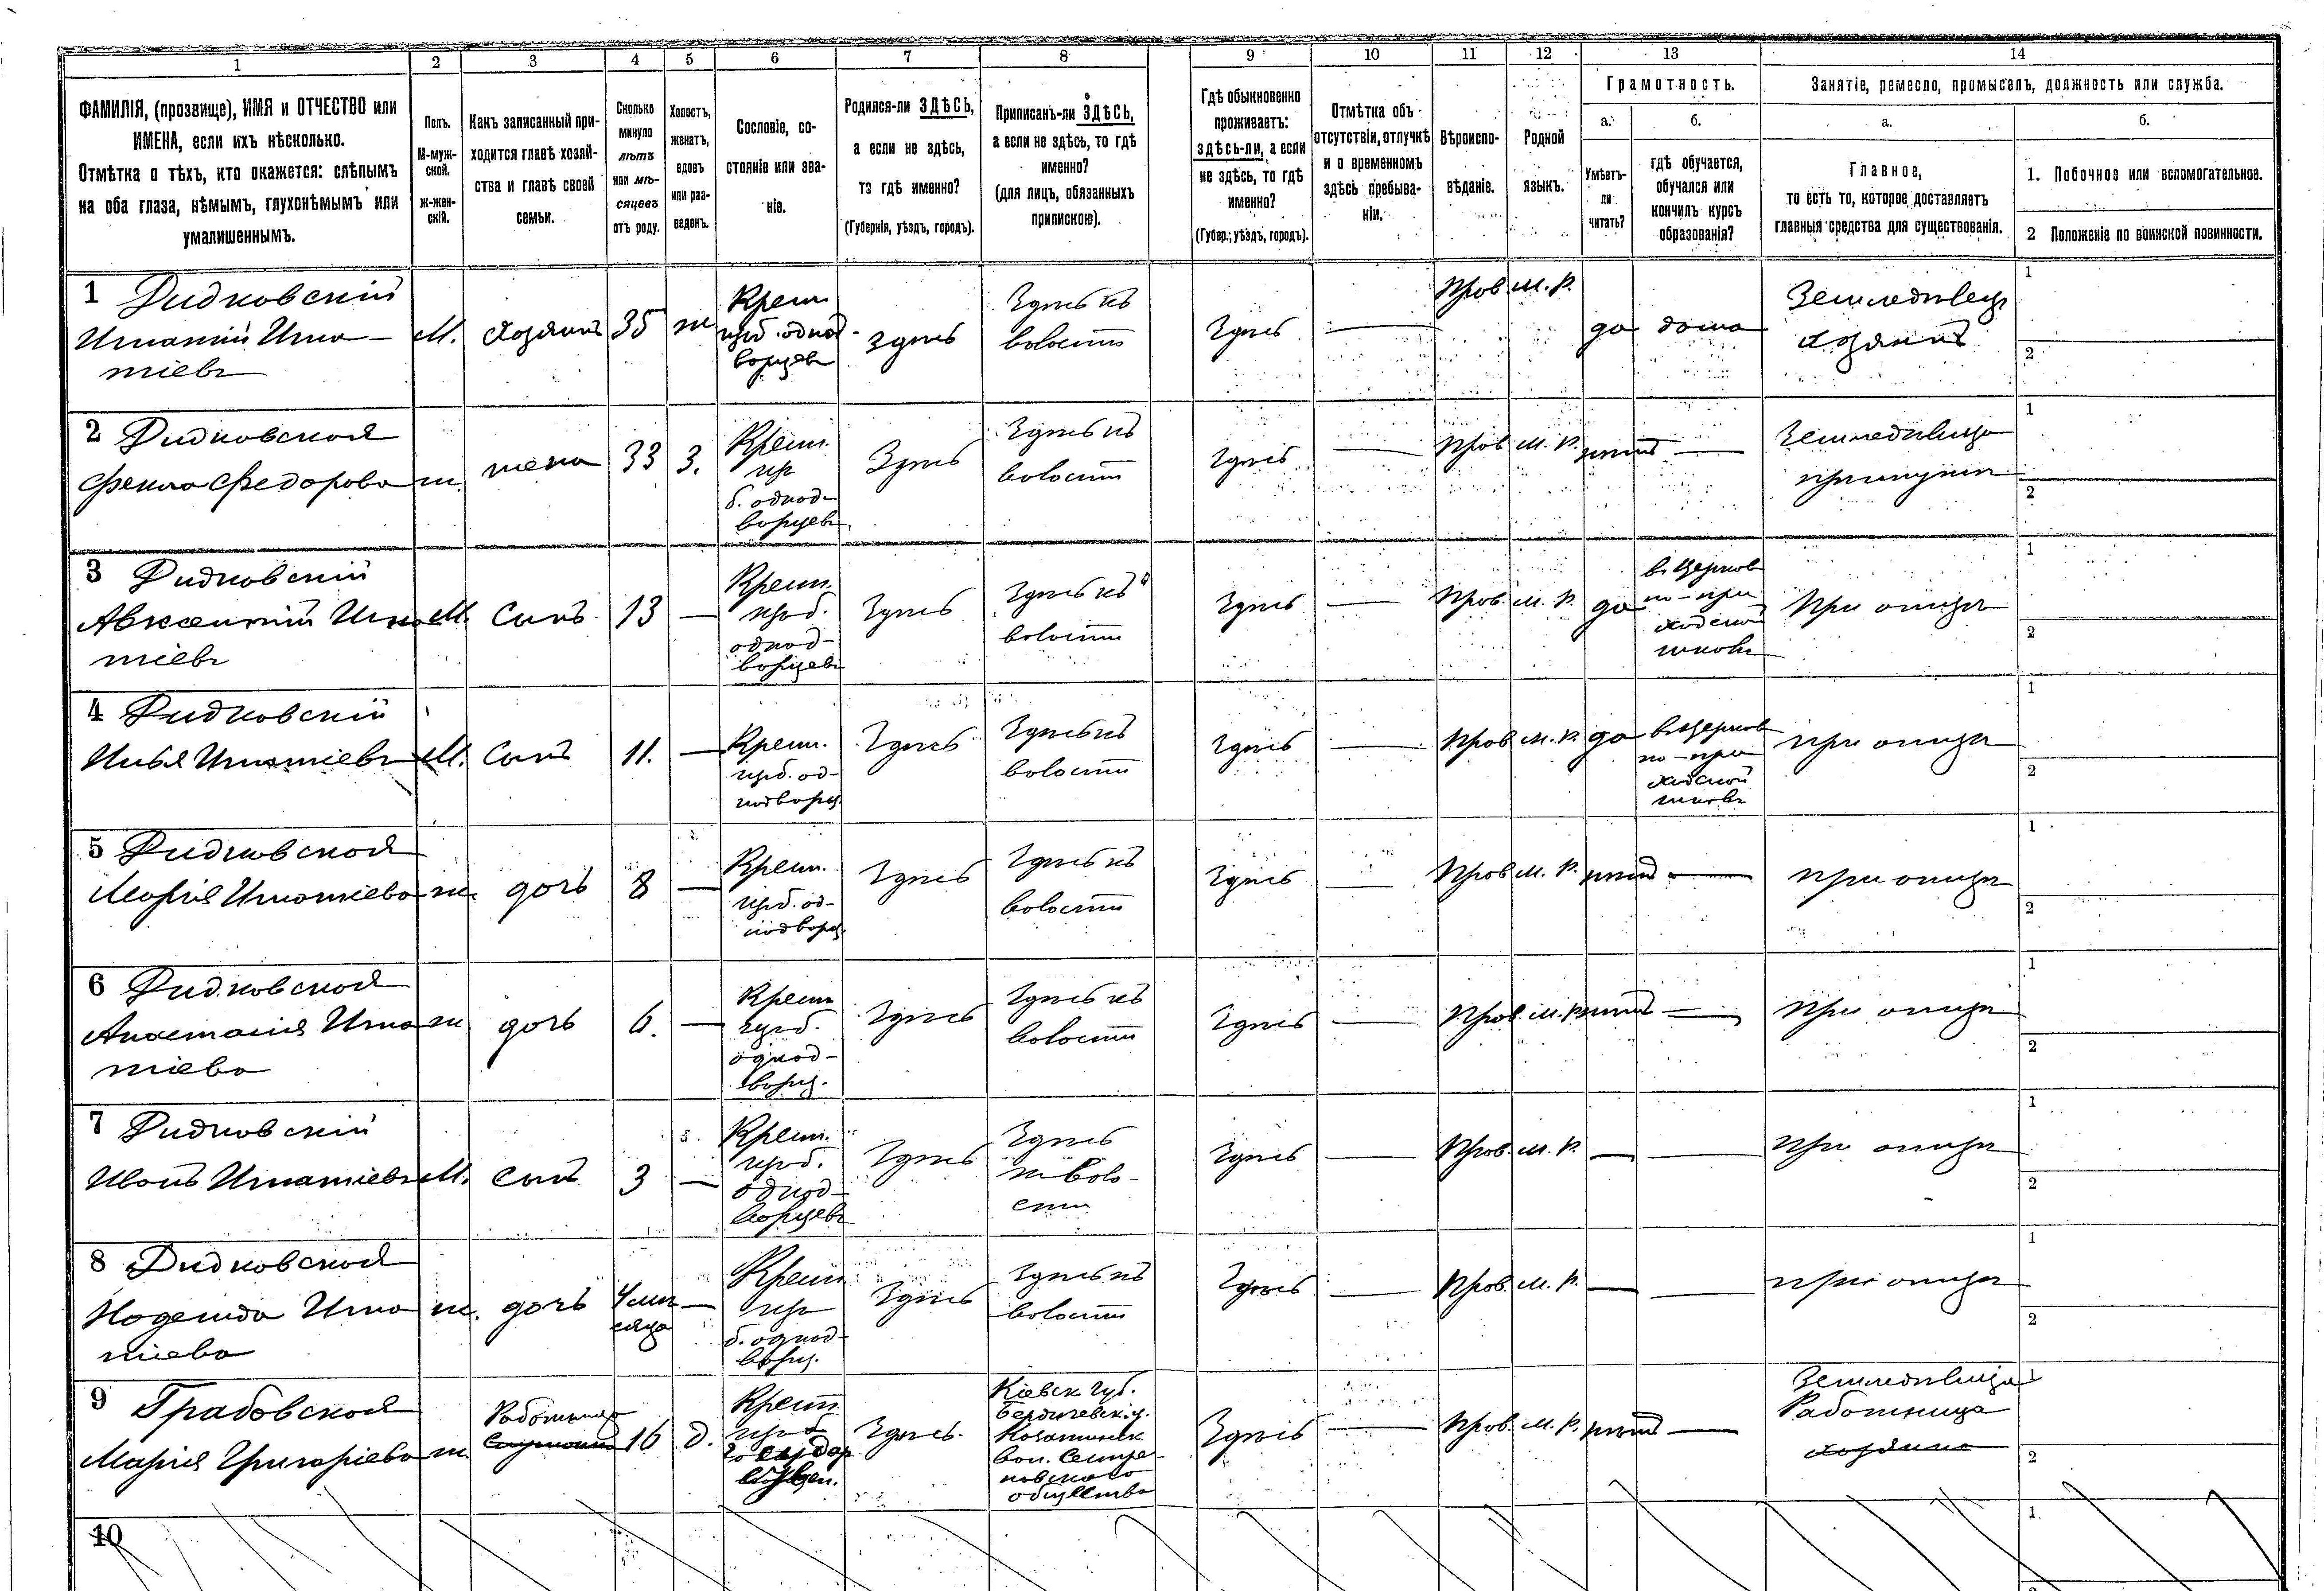 1 2 3 4 5 6 7 8 9 10 11 12 13 14
ФАМИЛІЯ, (прозвище), ИМЯ и ОТЧЕСТВО или
ИМЕНА, если ихъ нѣсколько.
Отмѣтка о тѣхъ, кто окажется: слѣпымъ
на оба глаза, нѣмымъ, глухонѣмымъ или
умалишеннымъ.
Полъ.
М-муж-
ской.
ж-жен-
скій.
Какъ записанный при-
ходится главѣ хозяй-
ства и главѣ своей
семьи.
Сколько
минуло
лѣтъ
или мѣ-
сяцевъ
отъ роду.
Холостъ,
женатъ,
вдовъ
или раз-
веденъ.
Сословіе, со-
стояніе или зва-
ніе.
Родился-ли ЗДѢСЬ,
а если не здѣсь,
то гдѣ именно?
(Губернія, уѣздъ, городъ).
Приписанъ-ли ЗДѢСЬ,
а если не здѣсь, то гдѣ
именно?
(для лицъ, обязанныхъ
припискою).
Гдѣ обыкновенно
проживаетъ:
здѣсь-ли, а если
не здѣсь, то гдѣ
именно?
(Губер.; уѣздъ, городъ).
Отмѣтка объ
отсутствіи, отлучкѣ
и о временномъ
здѣсь пребыва-
ніи.
Вѣроиспо-
вѣданіе.
Родной
языкъ.
Грамотность.
а.
Умѣетъ-
ли
читать?
б.
гдѣ обучается,
обучался или
кончилъ курсъ
образованія?
Занятіе, ремесло, промыселъ, должность или служба.
а.
Главное,
то есть то, которое доставляетъ
главныя средства для существованія.
б.
1. Побочное или вспомогательное.
2 Положеніе по воинской повинности.
1 Дидковскій
Игнатій Игна-
тіевъ
М.
хозяинъ
35
ж
Крест.
из б. однод-
ворцевъ
здѣсь
Здѣсь къ
волости
Здѣсь
—
Прав.
м. р.
да
дома
Земледѣлецъ
хозяинъ
1
2
2 Дидковская
Фекла Федорова
ж.
жена
33
З.
Крест.
из
б. однод-
ворцевъ
Здѣсь
Здѣсь къ
волости
Здѣсь
—
Прав.
м. р.
нѣтъ
—
Земледѣлица
при мужѣ
1
2
3 Дидковскій
Авксентій Игна
тіевъ
М.
Сынъ
13
—
Крест.
из б.
однод-
ворцевъ
Здѣсь
Здѣсь къ
волости
Здѣсь
—
Прав.
м. р.
да
въ церков
но-при
ходской
школѣ
При отцѣ
1
2
4 Дидковскій
Илья Игнатіевъ
М.
Сынъ
11.
—
Крест.
из б. од-
нодворц.
Здѣсь
Здѣсь къ
волости
Здѣсь
—
Прав
м. р.
да
въ церков
но-при
ходской
школѣ
при отцѣ
1
2
5 Дидковская
Марія Игнатіева
ж.
дочь
8
—
Крест.
из б. од-
нодворц
Здѣсь
Здѣсь къ
волости
Здѣсь
—
Прав.
м. р.
нѣтъ
—
при отцѣ
1
2
6 Дидковская
Анастасія Игна
тіева
ж
дочь
6.
—
Крест
из б.
однод-
ворц.
Здѣсь
Здѣсь къ
волости
Здѣсь
—
Прав.
м. р.
нѣтъ
—
при отцѣ
1
2
7 Дидковскій
Иванъ Игнатіевъ
М.
сынъ
3
—
Крест.
из б.
однод-
ворцевъ
Здѣсь
Здѣсь
къ воло-
сти
Здѣсь
—
Прав.
м. р.
—
—
при отцѣ
1
2
8 Дидковская
Надежда Игна
тіева
ж.
дочь
4 мѣ
сяца
—
Крест
из
б. однод-
ворц.
Здѣсь
Здѣсь къ
волости
Здѣсь
—
Прав.
м. р.
—
—
при отцѣ
1
2
9 Грабовская
Марія Григоріева
ж.
Работница
16
д.
Крест.
из б
Здѣсь.
Кіевск. губ.
Бердичевск. у.
Казатинск
вол.
общества
Здѣсь
—
Прав.
м. р.
нѣтъ
—
Земледѣлица
Работница
хозяина
1
2
10
1